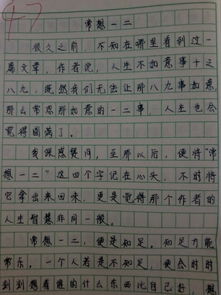 47
常想一二
很久之前，不知在哪里看到过一
篇文章，作者说，人生不如意事十之
八九，既然我们无法让那八九事如意，
那么常想那如意的一二事，人生也会
觉得圆满了。
我深感赞同，至那以后，便将“常
想一二”这四个字记在心头，不时将
它拿出来回味，更是觉得那个作者的
人生智慧非同一般。
常想一二，便是知足。知足方能
常乐，一个人若是不知足，便会时时
刻刻想着谁的什么东西比自己好，想